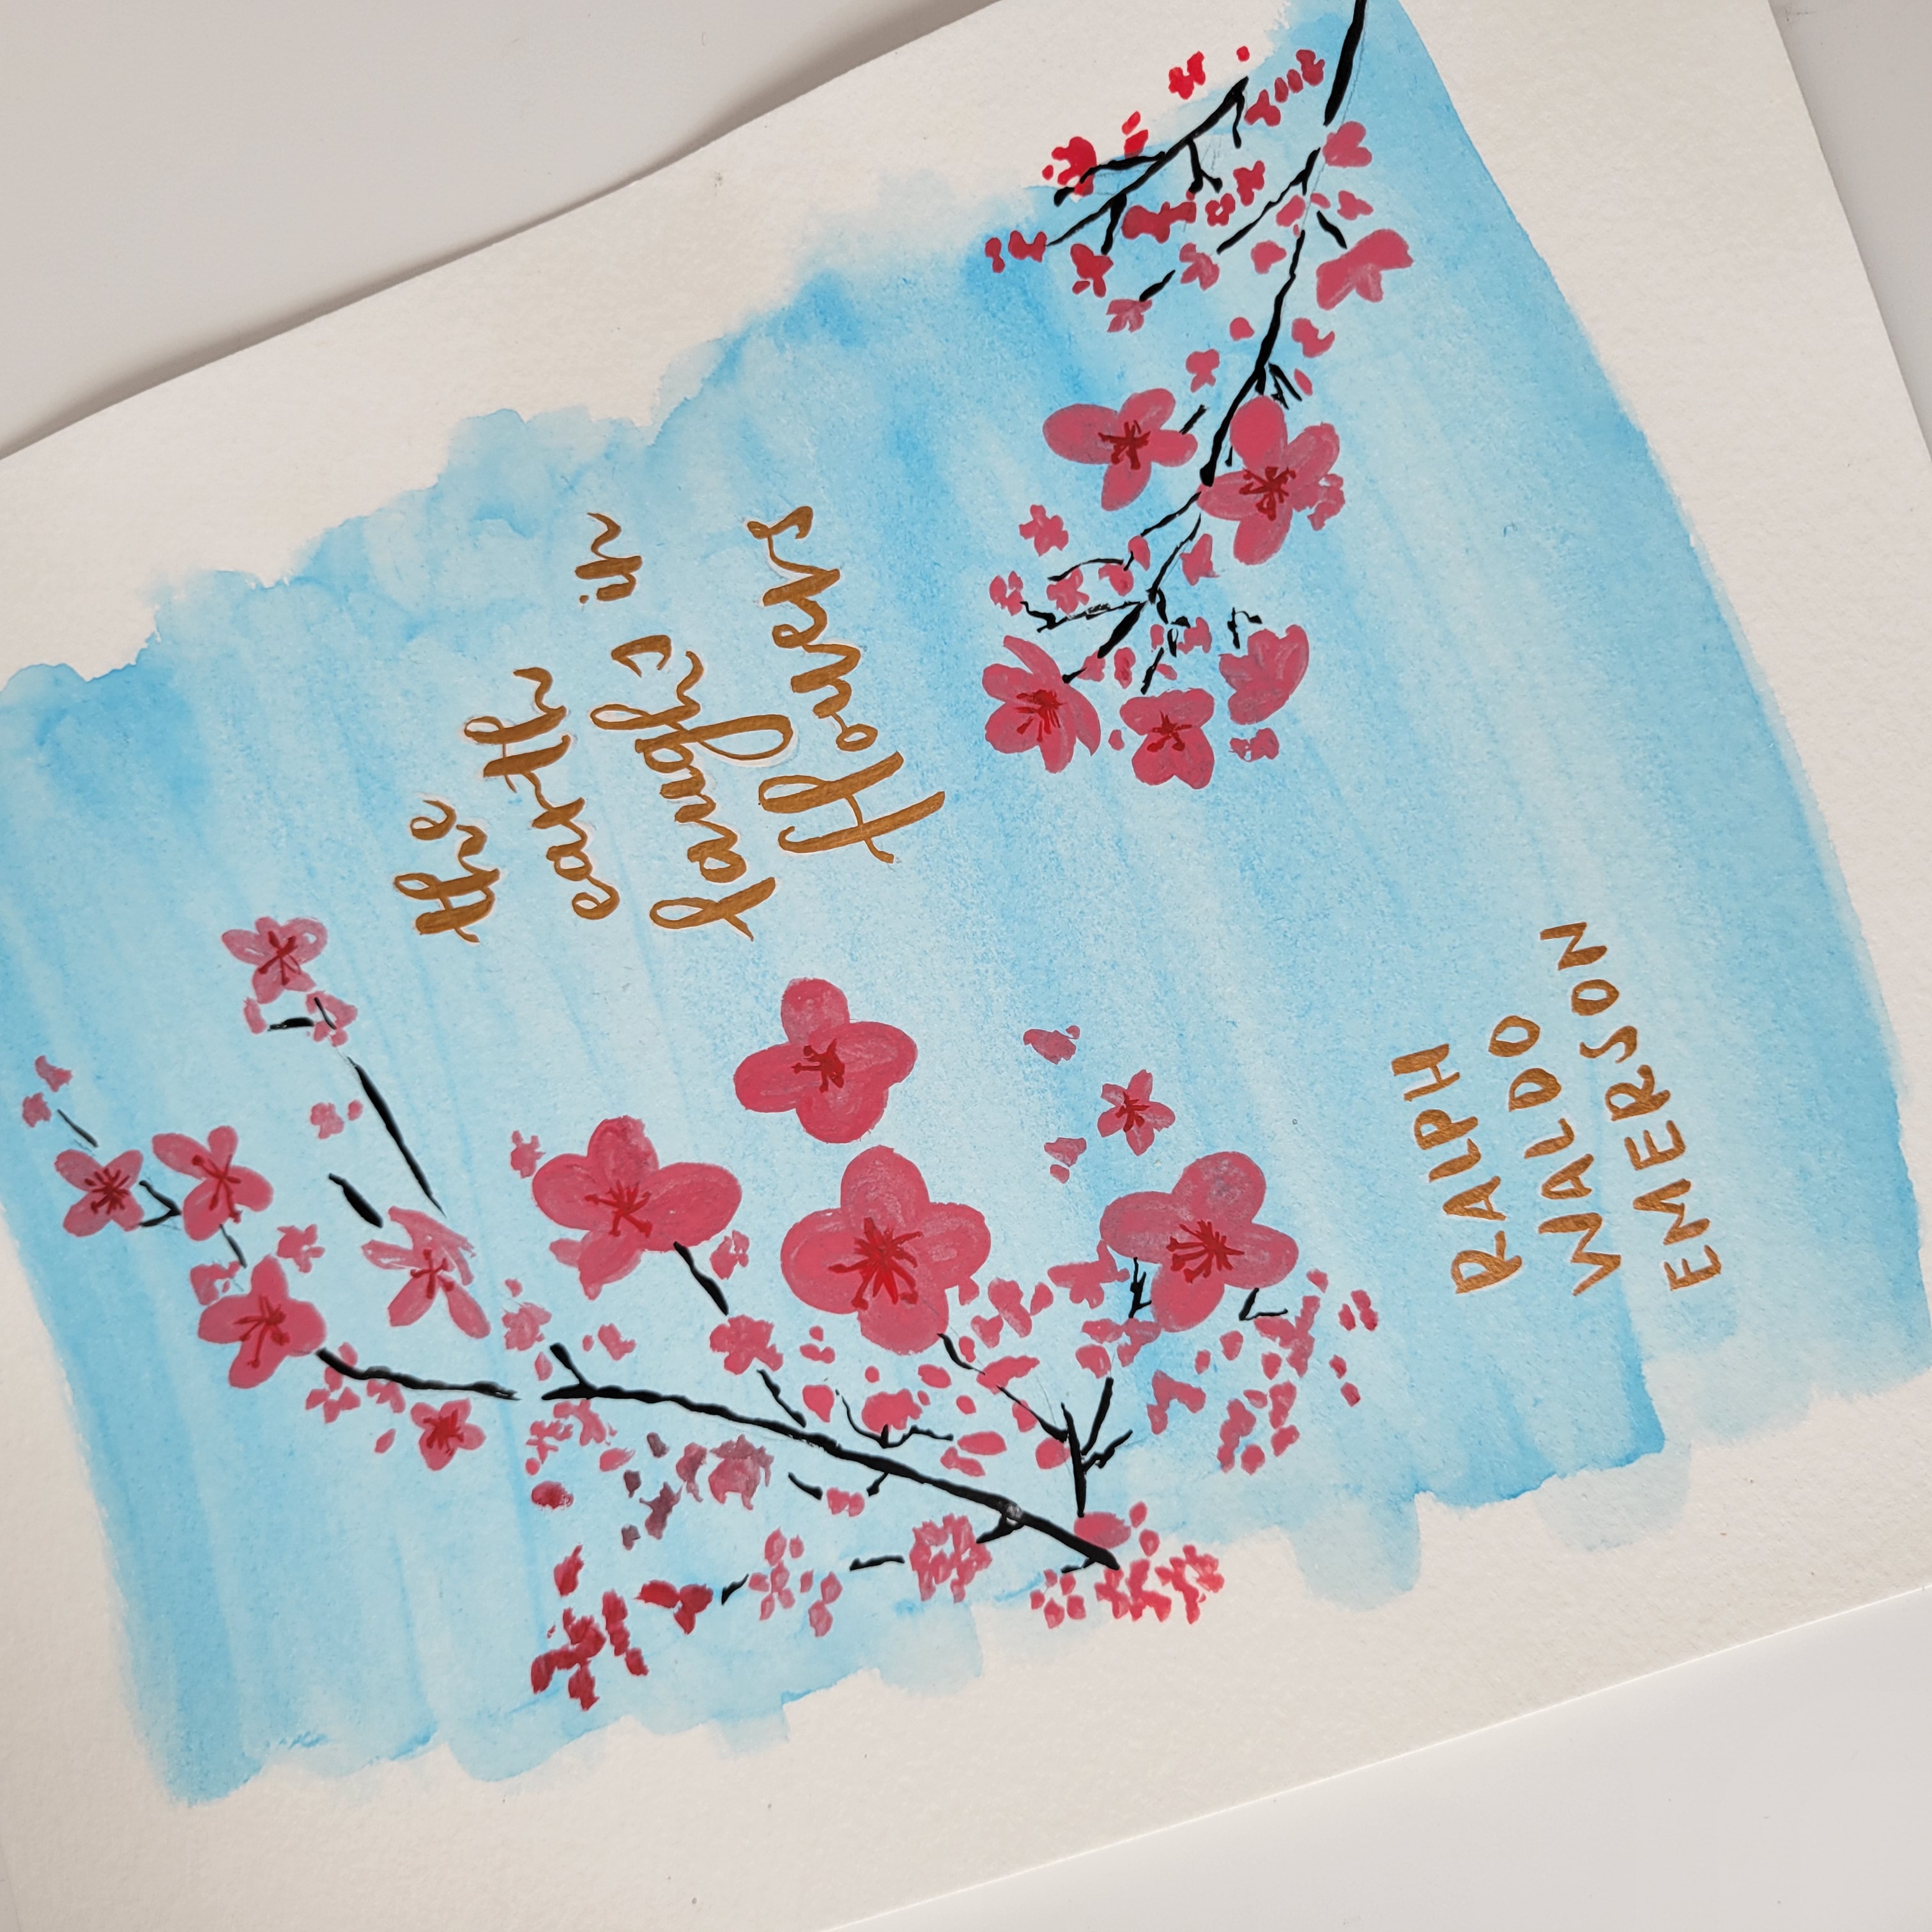 the
earth
laughs in
flowers
RALPH
WALDO
EMERSON